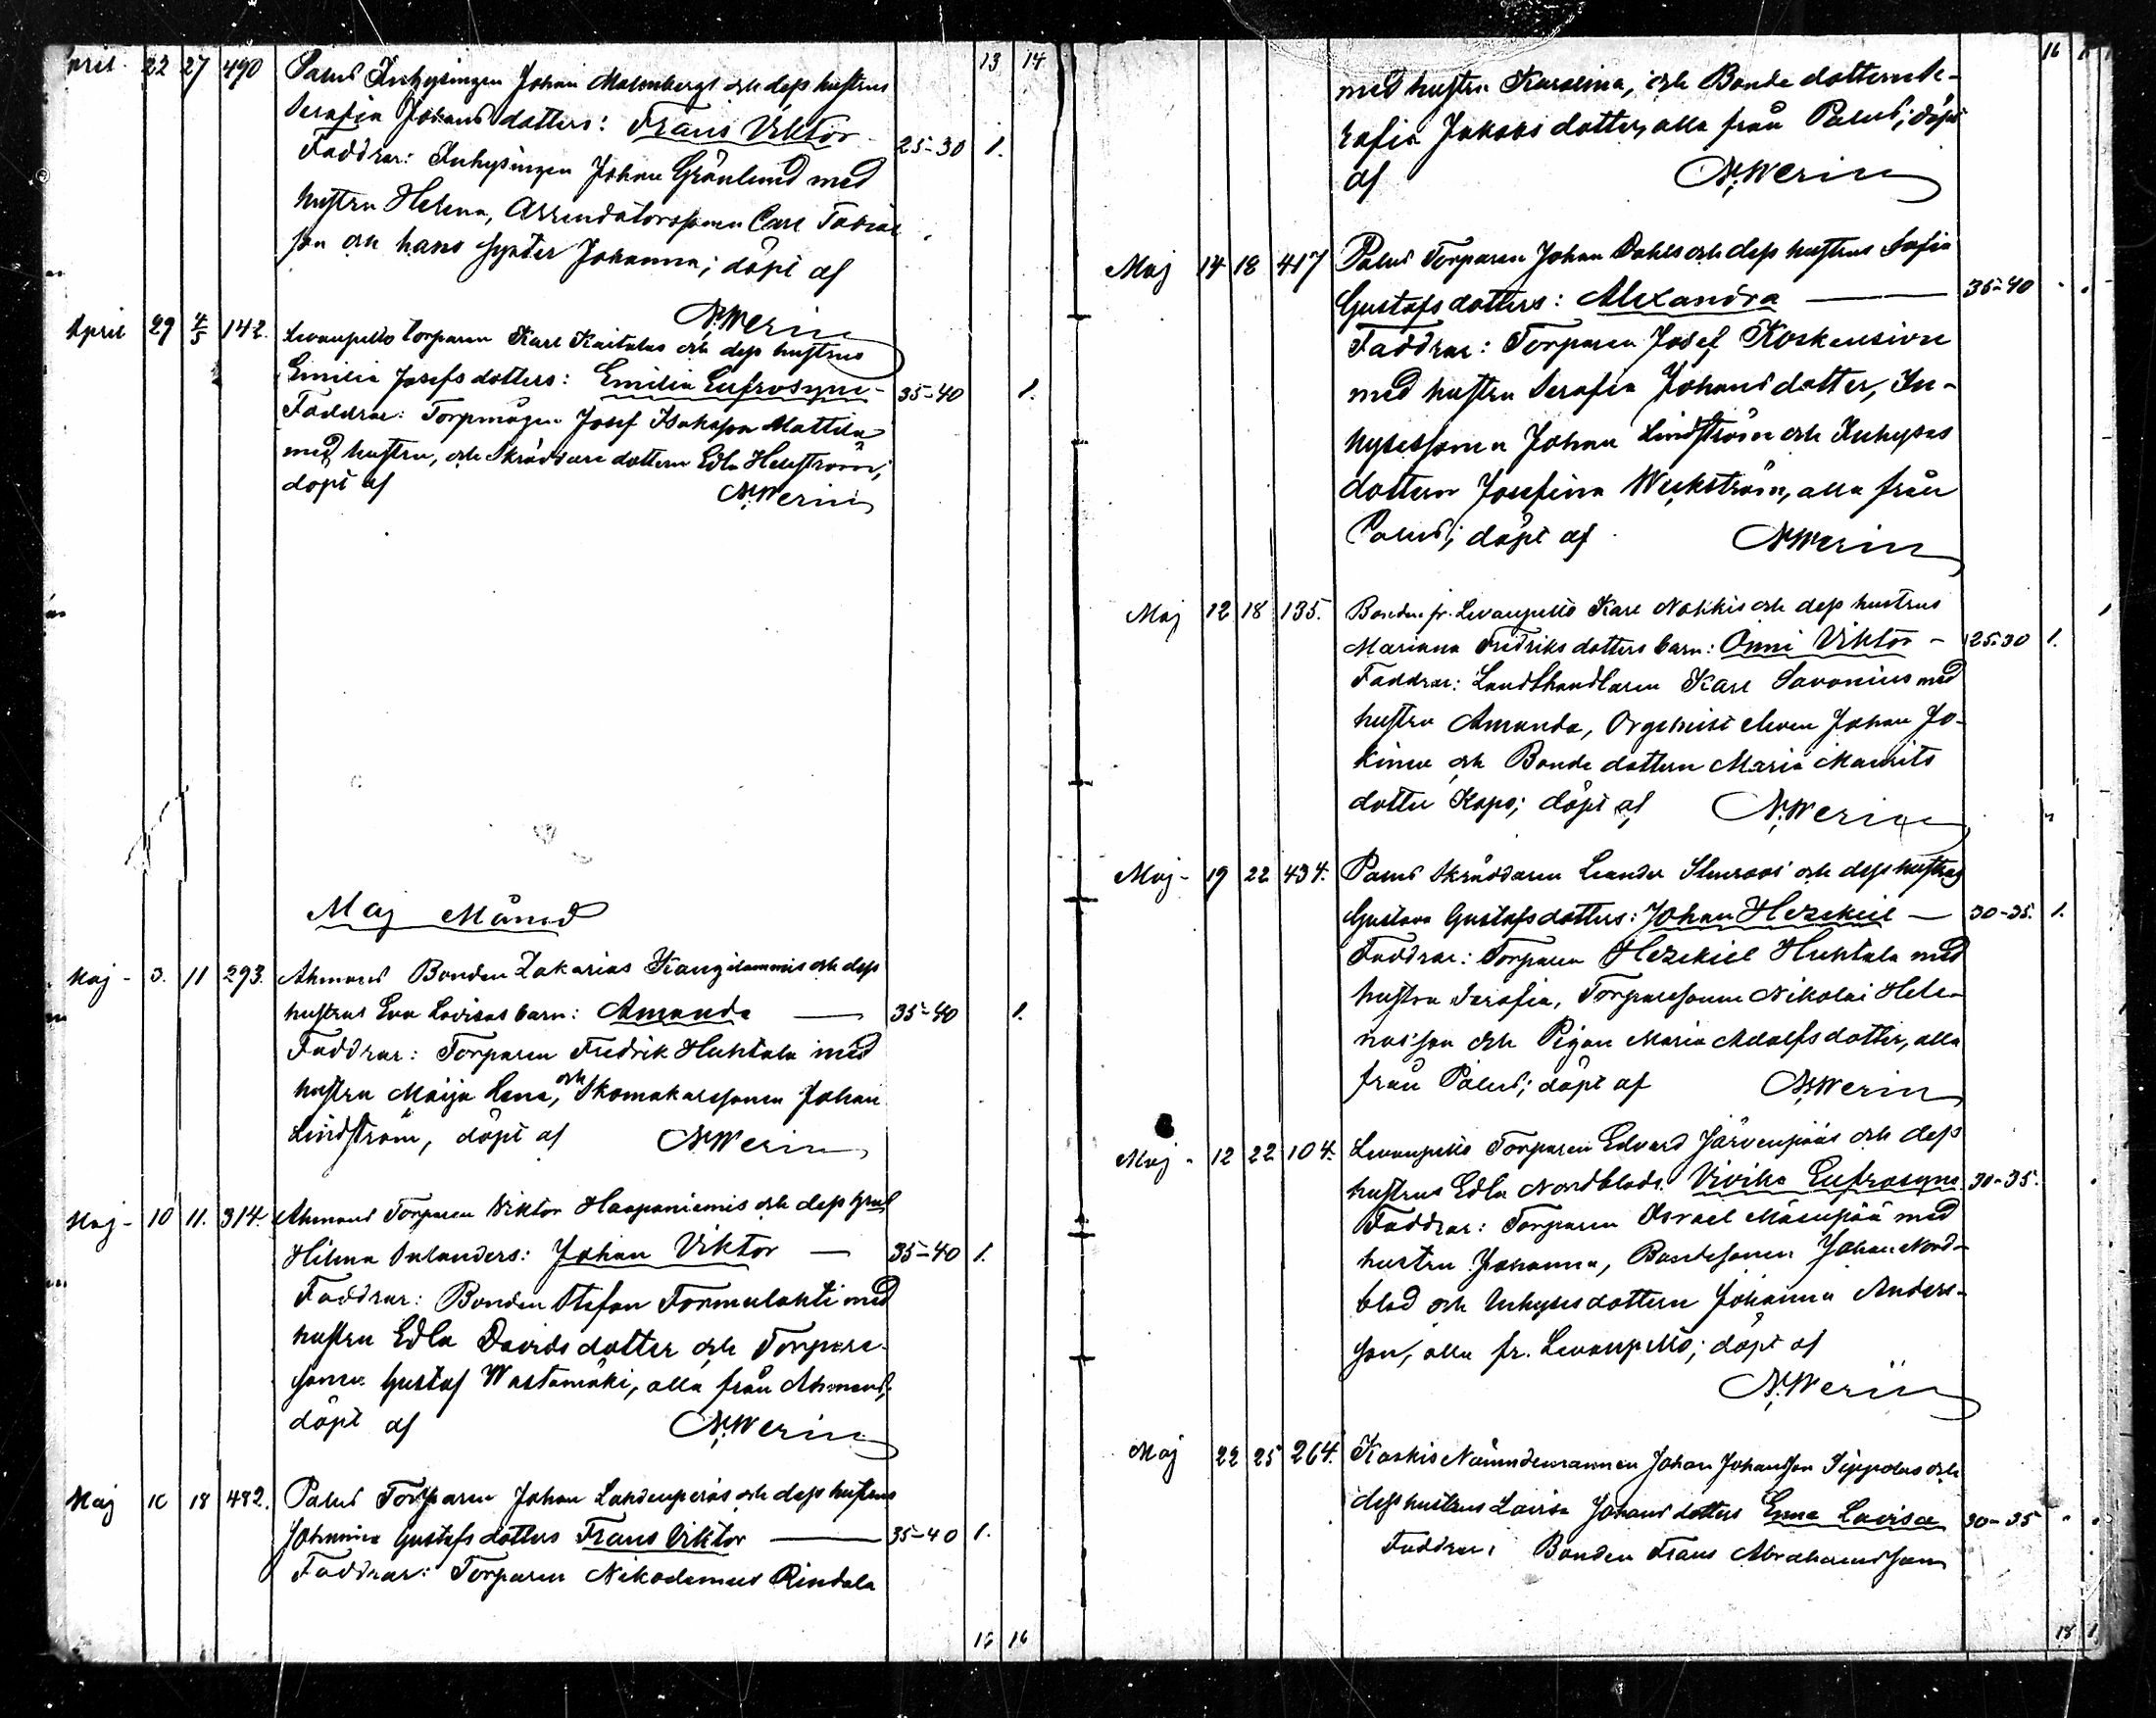 13 14
April 22 27 490 Palus Inhysingen Johan Malmbergs och dess hustrus
Serafia Johansdotters: Frans Viktor 25-30 1.
Faddrar: Inhysingen Johan Grönlund med
hustru Helena, Arrendatorssonen Carl Tobias
son och hans syster Johanna; döpt af
N. Werin
April 29 4/5 142. Levanpelto torparen Karl Kaitalas och dess hustrus
Emilia Josefsdotters: Emilia Eufrosyne - 35-40 1.
Faddrar: Torpmågen Josef Isaksson Mattila
med hustru, och Skräddare dottern Edla Hellström;
döpt af N. Werin
Maj Månad
Maj - 3. 11 293. Ahmans Bonden Zakarias Kangasniemis och dess
hustrus Eva Lovisas barn: Amanda — 35-40 1.
Faddrar: Torparen Fredrik Huhtala med
hustru Maija Lena, och Skomakaresonen Johan
Lindström, döpt af N. Werin
Maj - 10 11. 314. Ahmans Torparen Viktor Haapaniemis och dess hust
Hilma Inlanders: Johan Viktor — 35-40 1.
Faddrar: Bonden Stefan Tommilahti med
hustru Edla Davidsdotter och Torpare-
sonen Gustaf Wastamäki, alla från Ahmans;
döpt af N. Werin
Maj 10 18 482. Palus Torparen Johan Lahdenperäs och dess hustrus
Johanna Gustafsdotters Frans Viktor — 35-40 1.
Faddrar: Torparen Nikodemus Rindala
16 16
16
med hustru Karolina, och Bonde dottern Se-
rafia Jakobsdotter, alla från Palus; döpt
af N. Werin
Maj 14 18 417 Palus Torparen Johan Dahls och dess hustrus Sofia
Gustafsdotters: Alexandra — 35-40
Faddrar: Torparen Josef Koskensivu
med hustru Serafia Johansdotter, In-
hysessonen Johan Lindström och Inhyses
dottern Josefina Weckström, alla från
Palus; döpt af N. Werin
Maj 12 18 135. Bonden fr. Levanpelto Karl Nokkis och dess hustrus
Mariana Fredriksdotters barn: Onni Viktor - 25-30 1.
Faddrar: Landthandlaren Karl Savonius med
hustru Amanda, Orgelnist eleven Johan Jo-
kinen och Bonde dottern Maria Maurits
dotter Kopo; döpt af N. Werin
Maj - 19 22 434. Palus Skräddaren Leander Stenroos' och dess hustrus
Gustava Gustafsdotters: Johan Hezekiel — 30-35. 1.
Faddrar: Torparen Hezekiel Huhtala med
hustru Serafia, Torparesonen Nikolai Hele-
nasson och Pigan Maria Adolfsdotter, alla
från Palus; döpt af N. Werin
Maj - 12 22 104. Levanpelto Torparen Edvard Järvenpääs och dess
hustrus Edla Nordblads: Vivika Eufrosyne 30-35.
Faddrar: Torparen Israel Mäenpää med
hustru Johanna, Bondesonen Johan Nord-
blad och Inhyses dottern Johanna Anders-
son, alla fr. Levanpelto; döpt af
N. Werin
Maj 22 25 264. Koskis Nämndemannen Johan Johansson Seppälas och
dess hustrus Lovisa Johansdotters Enne Lovisa 30-35
Faddrar: Bonden Frans Abrahamsson
18